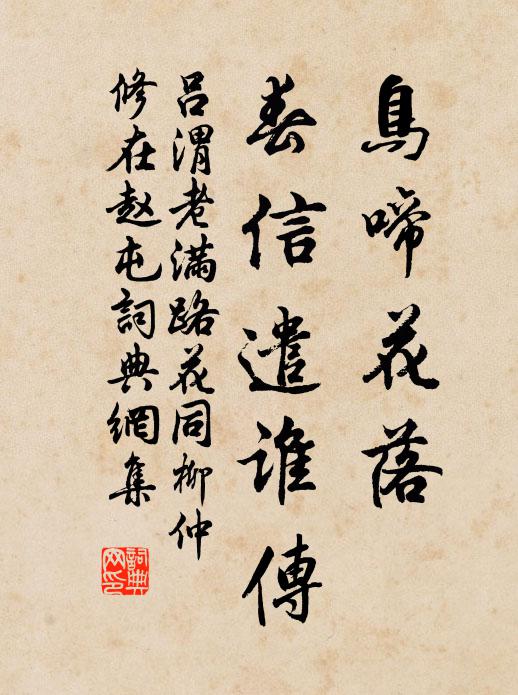 鳥啼花落
春信遣誰傳
吕渭老滿路花同柳仲
修在赵屯詞典網集
詞典网印